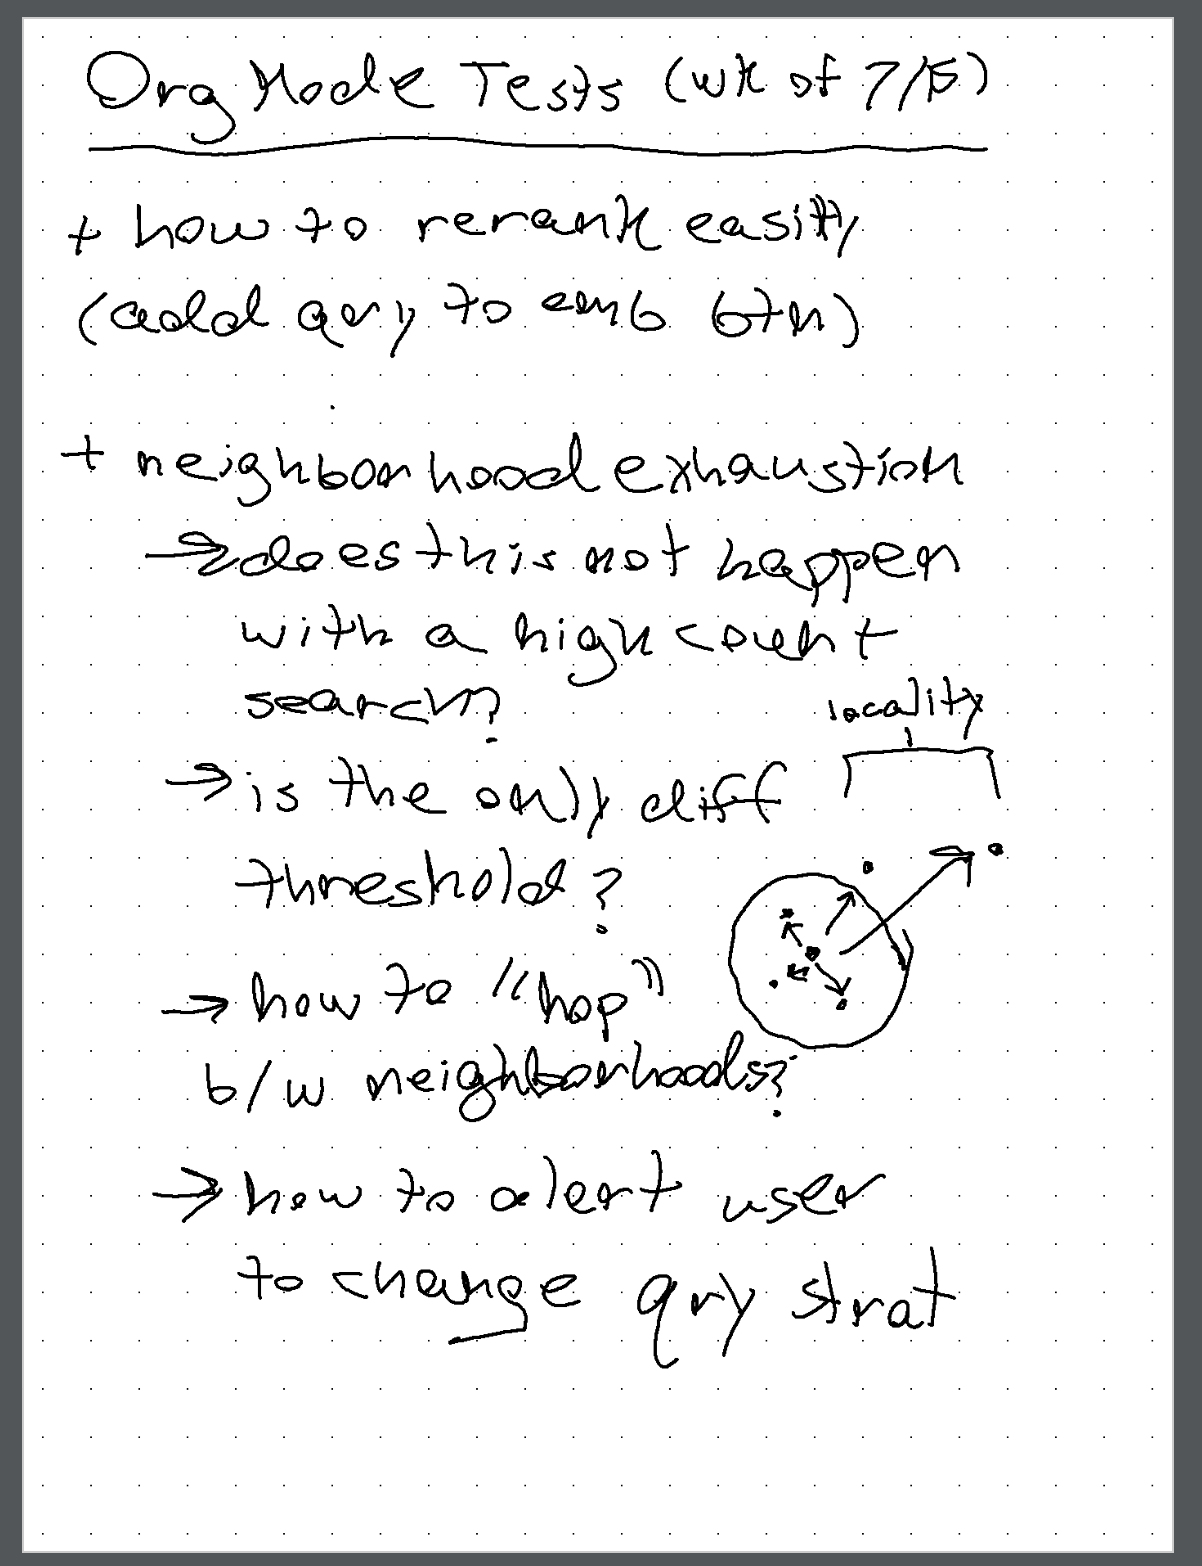 Org Mode Tests (wk of 7/15)
+ how to rerank easily
(add qry to emb btn)
+ neighborhood exhaustion
→ does this not happen
with a high count
search?
locality
→ is the only diff
threshold?
→ how to "hop"
b/w neighborhoods?
→ how to alert user
to change qry strat